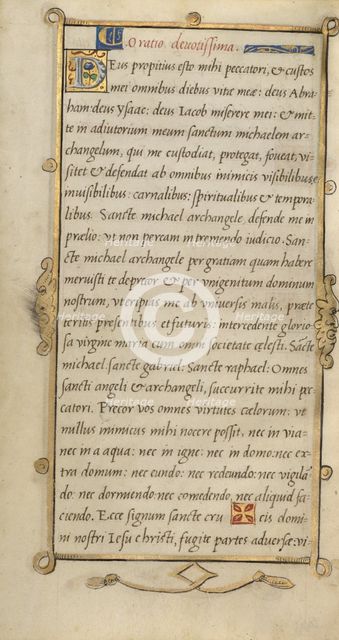 Oratio deuotissima.
Deus propitius esto mihi peccatori, & custos
mei omnibus diebus vitæ meæ: deus Abra
ham: deus ysaac: deus Iacob miserere mei: & mit-
te in adiutorium meum sanctum michaelem ar-
changelum, qui me custodiat, protegat, foueat, vi-
sitet & defendat ab omnibus inimicis visibilibus &
inuisibilibus: carnalibus: spiritualibus & tempora
libus. Sancte michael archangele, defende me in
prælio: vt non peream in tremendo iudicio. San-
cte michael archangele per gratiam quam habere
meruisti te deprecor & per vnigenitum dominum
nostrum, vt eripias me ab vniuersis malis, præte
teritis presentibus et futuris: intercedente glorio-
sa virgine maria cum omni societate cælesti. Sācte
michael: sancte gabriel: Sancte raphael: Omnes
sancti angeli & archangeli, succurrite mihi pec
catori. Precor vos omnes virtutes cælorum: vt
nullus inimicus mihi nocere possit, nec in via:
nec in aqua: nec in igne: nec in domo: nec ex-
tra domum: nec eundo: nec redeundo: nec vigilā
do: nec dormiendo: nec comedendo, nec aliquid fa-
ciendo. Ecce signum sancte cru cis domi
ni nostri Iesu christi, fugite partes aduersæ: vi-
Heritage
Images